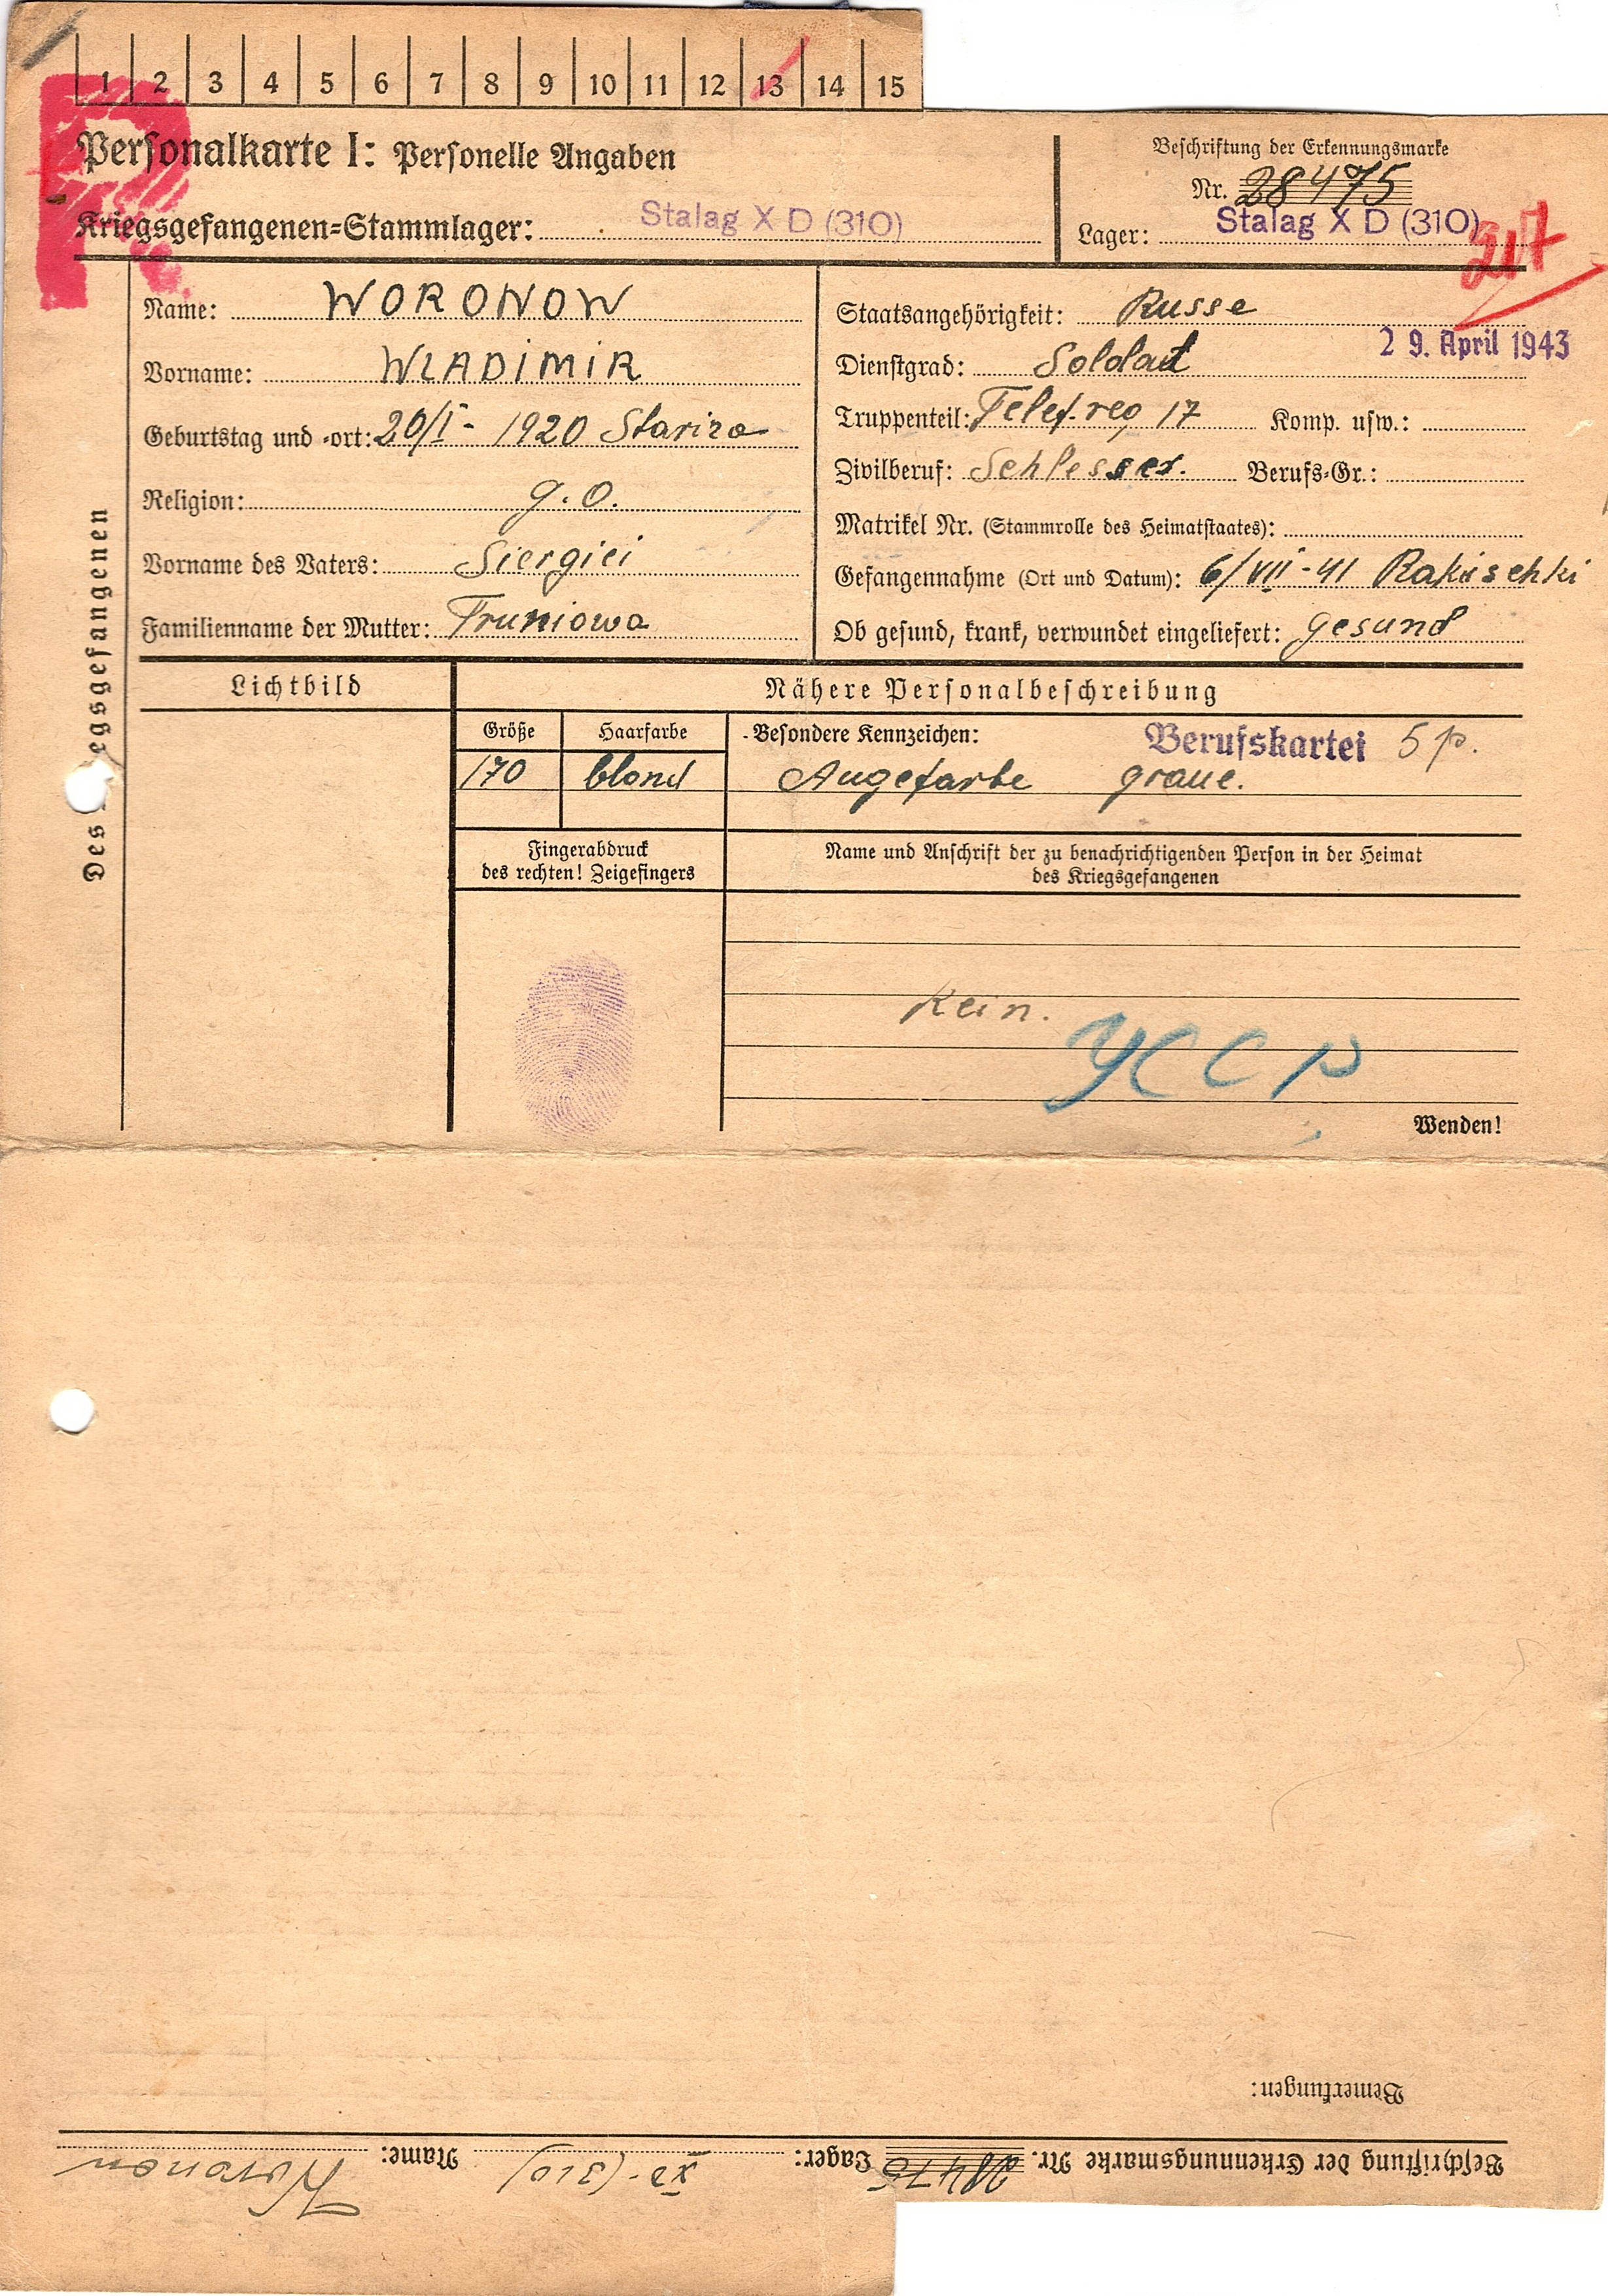 1 2 3 4 5 6 7 8 9 10 11 12 13 14 15
Personalkarte I: Personelle Angaben
Kriegsgefangenen=Stammlager: Stalag X D (310)
Beschriftung der Erkennungsmarke
Nr. 28475
Lager: Stalag X D (310)
317
Des egsgefangenen
Name: WORONOW
Vorname: WLADIMIR
Geburtstag und =ort: 20/I - 1920 Stariza
Religion: g. O.
Vorname des Vaters: Siergiei
Familienname der Mutter: Fruniowa
Staatsangehörigkeit: Russe
29. April 1943
Dienstgrad: Soldat
Truppenteil: Telef. reg 17 Komp. usw.:
Zivilberuf: Schlesser. Berufs=Gr.:
Matrikel Nr. (Stammrolle des Heimatstaates):
Gefangennahme (Ort und Datum): 6/VII - 41 Rakischki
Ob gesund, krank, verwundet eingeliefert: gesund
Lichtbild
Nähere Personalbeschreibung
Größe Haarfarbe
170 blond
Besondere Kennzeichen: Berufskartei 5 p.
Augefarbe graue.
Fingerabdruck
des rechten! Zeigefingers
Name und Anschrift der zu benachrichtigenden Person in der Heimat
des Kriegsgefangenen
Kein.
УССР
Wenden!
Bemerkungen:
Beschriftung der Erkennungsmarke Nr. 28475 Lager: XD-(310) Name: Woronow